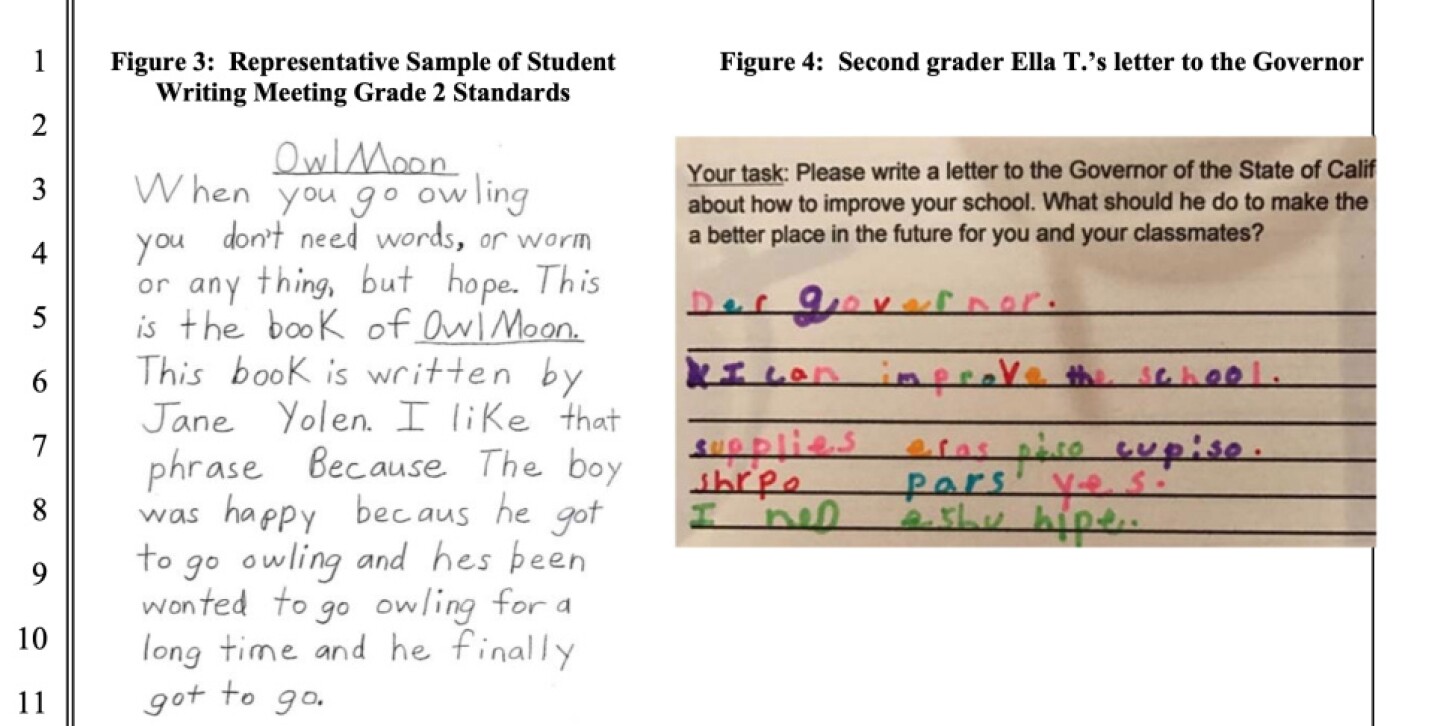 1
Figure 3: Representative Sample of Student
Writing Meeting Grade 2 Standards
2
3
4
5
6
7
8
9
10
11
Owl Moon
When you go owling
you don't need words, or worm
or any thing, but hope. This
is the book of Owl Moon.
This book is written by
Jane Yolen. I like that
phrase Because The boy
was happy becaus he got
to go owling and hes been
wonted to go owling for a
long time and he finally
got to go.
Figure 4: Second grader Ella T.'s letter to the Governor
Your task: Please write a letter to the Governor of the State of Calif
about how to improve your school. What should he do to make the
a better place in the future for you and your classmates?
Der governor.
I can improve the school.
supplies eras piso cupiso.
shrpo pars yes.
I neD eshu hipe.